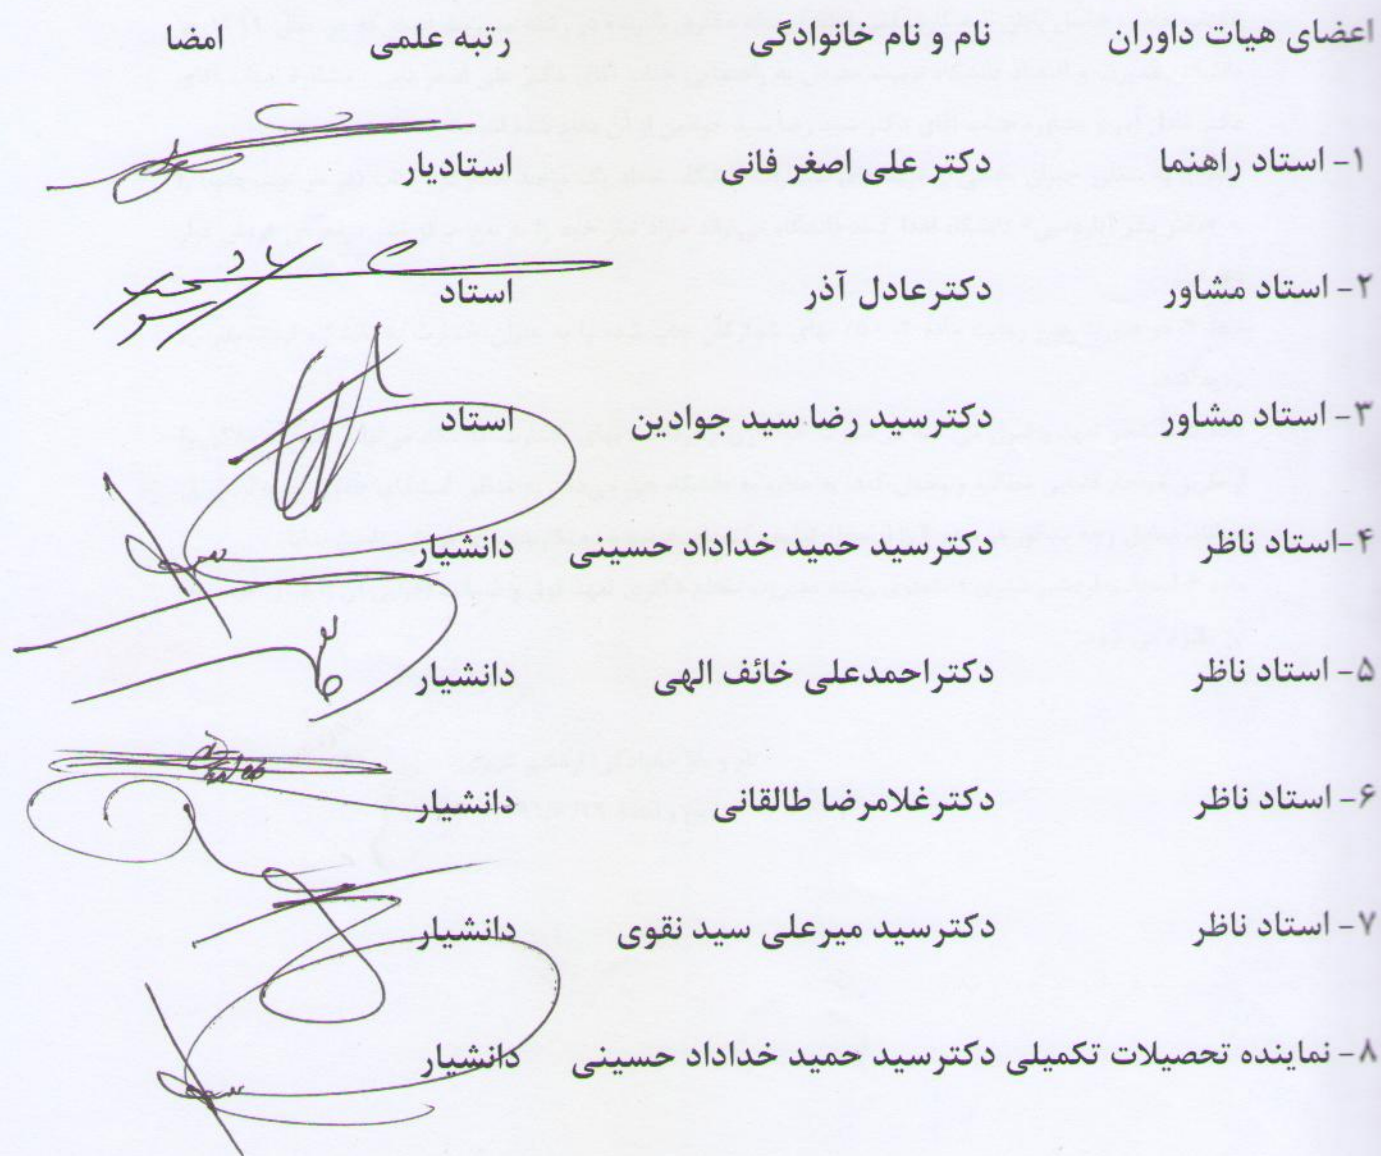 اعضای هیات داوران نام و نام خانوادگی رتبه علمی امضا
۱- استاد راهنما دکتر علی اصغر فانی استادیار
۲- استاد مشاور دکترعادل آذر استاد
۳- استاد مشاور دکترسید رضا سید جوادین استاد
۴-استاد ناظر دکترسید حمید خداداد حسینی دانشیار
۵- استاد ناظر دکتراحمدعلی خائف الهی دانشیار
۶- استاد ناظر دکترغلامرضا طالقانی دانشیار
۷- استاد ناظر دکترسید میرعلی سید نقوی دانشیار
۸- نماینده تحصیلات تکمیلی دکترسید حمید خداداد حسینی دانشیار